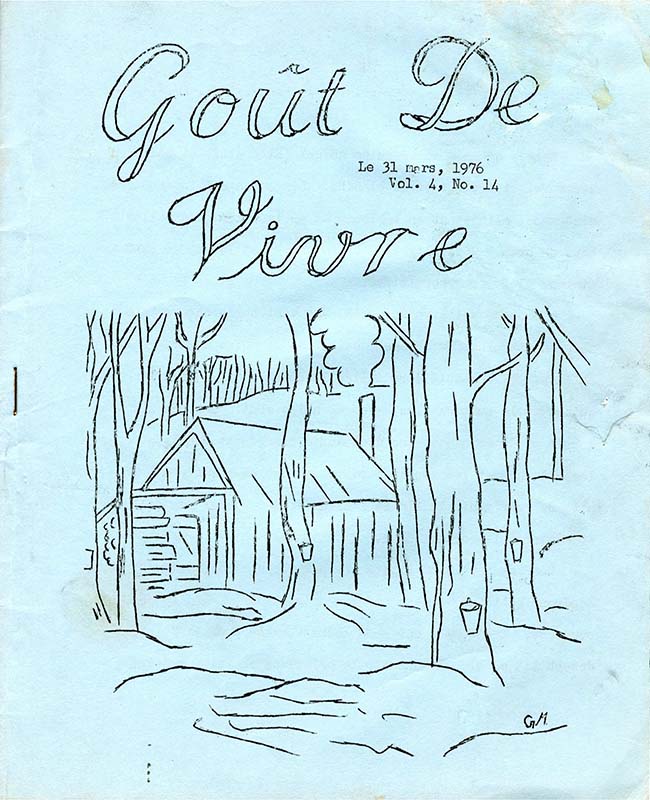 Goût De
Le 31 mars, 1976
Vol. 4, No. 14
Vivre
GM